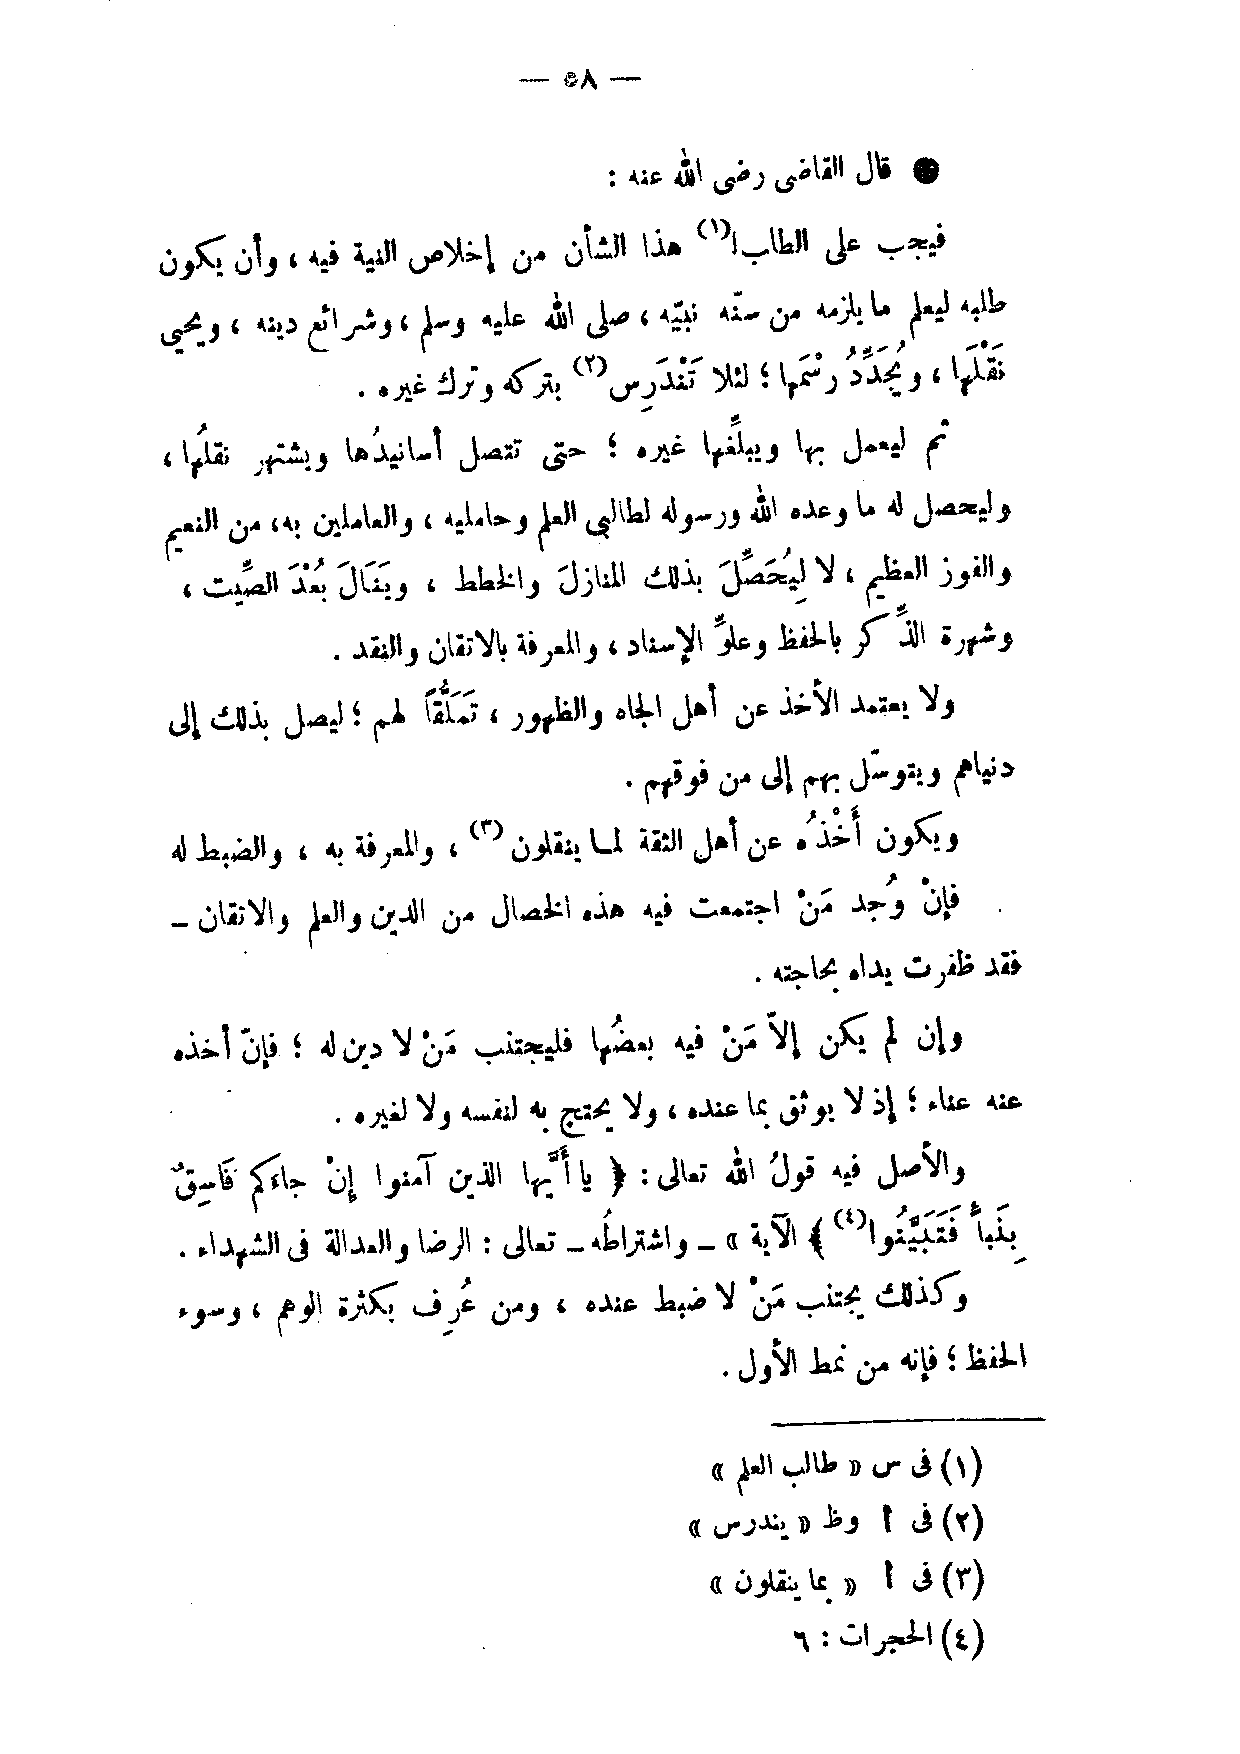 — ٥٨ —
● قال القاضى رضى الله عنه :
فيجب على الطالب(١) هذا الشأن من إخلاص النية فيه ، وأن يكون
طلبه ليعلم ما يلزمه من سنّه نبيّه ، صلى الله عليه وسلم ، وشرائع دينه ، ويحيى
نَقْلَها ، ويُجَدِّدُ رسْمَها ؛ لئلا تَنْدَرِس(٢) بتركه وترك غيره .
ثم ليعمل بها ويبلِّغها غيره ؛ حتى تتصل أسانيدُها ويشتهر نقلُها ،
وليحصل له ما وعده الله ورسوله لطالبي العلم وحامليه ، والعاملين به ، من النعيم
والفوز العظيم ، لا لِيُحَصِّلَ بذلك المنازلَ والخطط ، ويَنَالَ بُعْدَ الصِّيت ،
وشهرة الذِّكر بالحفظ وعلوِّ الإسناد ، والمعرفة بالاتقان والنقد .
ولا يعتمد الأخذ عن أهل الجاه والظهور ، تَمَلُّقًا لهم ؛ ليصل بذلك إلى
دنياهم ويتوسّل بهم إلى من فوقهم .
ويكون أَخْذُه عن أهل الثقة لما ينقلون(٣) ، والمعرفة به ، والضبط له
فإنْ وُجد مَنْ اجتمعت فيه هذه الخصال من الدين والعلم والاتقان –
فقد ظفرت يداه بحاجته .
وإن لم يكن إلاّ مَنْ فيه بعضُها فليجتنب مَنْ لا دين له ؛ فإنّ أخذه
عنه عناء ؛ إذ لا يوثق بما عنده ، ولا يحتج به لنفسه ولا لغيره .
والأصل فيه قولُ الله تعالى : ﴿ يا أَيُّها الذين آمنوا إِنْ جاءكم فَاسِقٌ
بِنَبأٍ فَتَبَيَّنُوا(٤) ﴾ الآية » – واشتراطُه – تعالى : الرضا والعدالة فى الشهداء .
وكذلك يجتنب مَنْ لا ضبط عنده ، ومن عُرِف بكثرة الوهم ، وسوء
الحفظ ؛ فإنه من نمط الأول .
(١) فى س « طالب العلم »
(٢) فى أ وظ « يندرس »
(٣) فى أ « بما ينقلون »
(٤) الحجرات : ٦